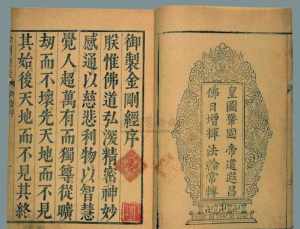 皇圖鞏固 帝道遐昌
佛日增輝 法輪常轉
御製金剛經序
朕惟佛道弘深精密神妙
感通以慈悲利物以智慧
覺人超萬有而獨尊從曠
劫而不壞先天地而不見
其始後天地而不見其終